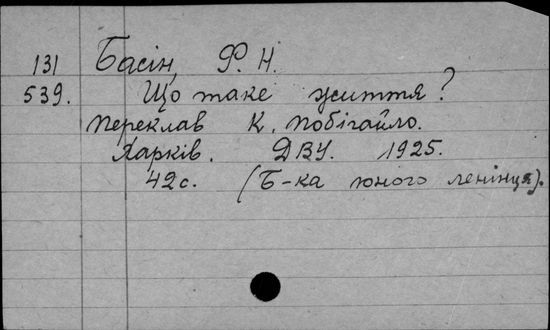 131 Басін, Ф. Н.
539. Що таке життя?
Переклав К. Побігайло.
Харків. ДВУ. 1925.
42 с. (Б-ка юного ленінця).